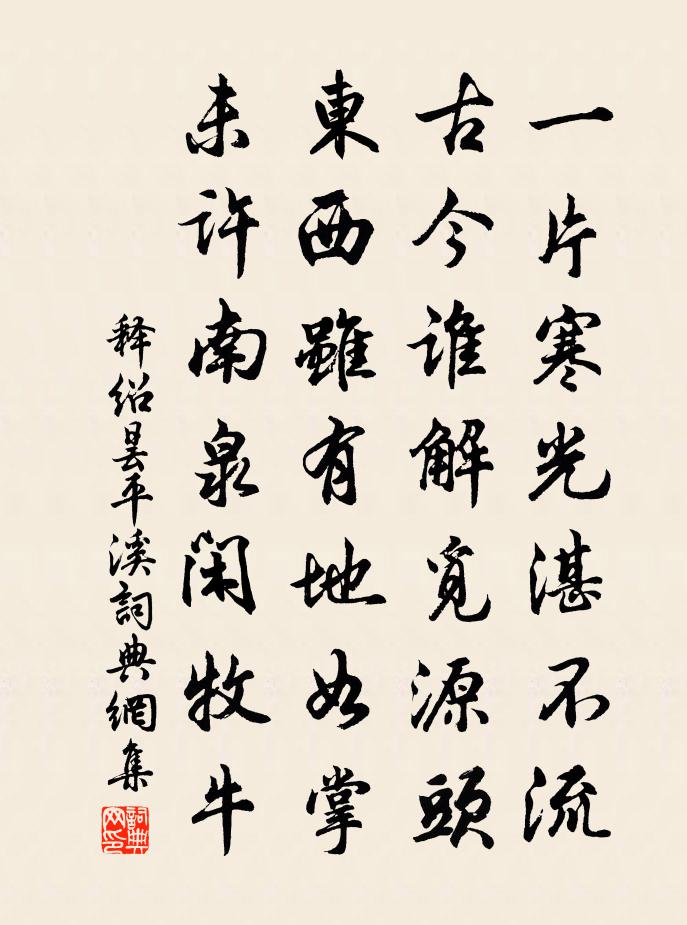 一片寒光湛不流
古今谁解覓源頭
東西雖有地如掌
未许南泉閑牧牛
释绍昙平溪詞典網集
詞典网印